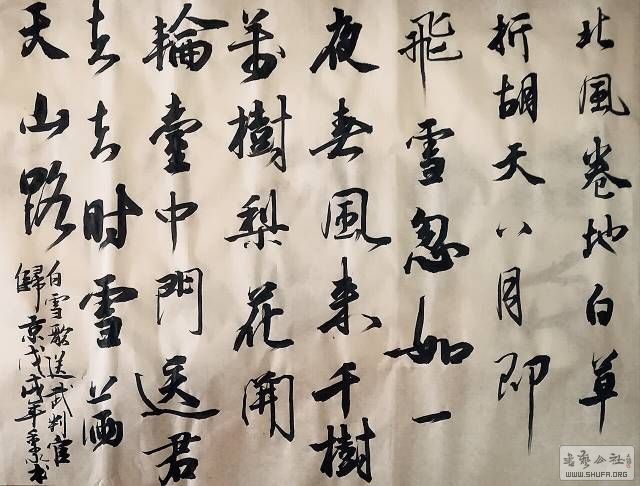 北風卷地白草
折胡天八月即
飛雪忽如一
夜春風来千樹
萬樹梨花開
輪臺中門送君
去去时雪满
天山路
白雪歌送武判官
歸京戊戌年
书艺公社
WWW.SHUFA.ORG